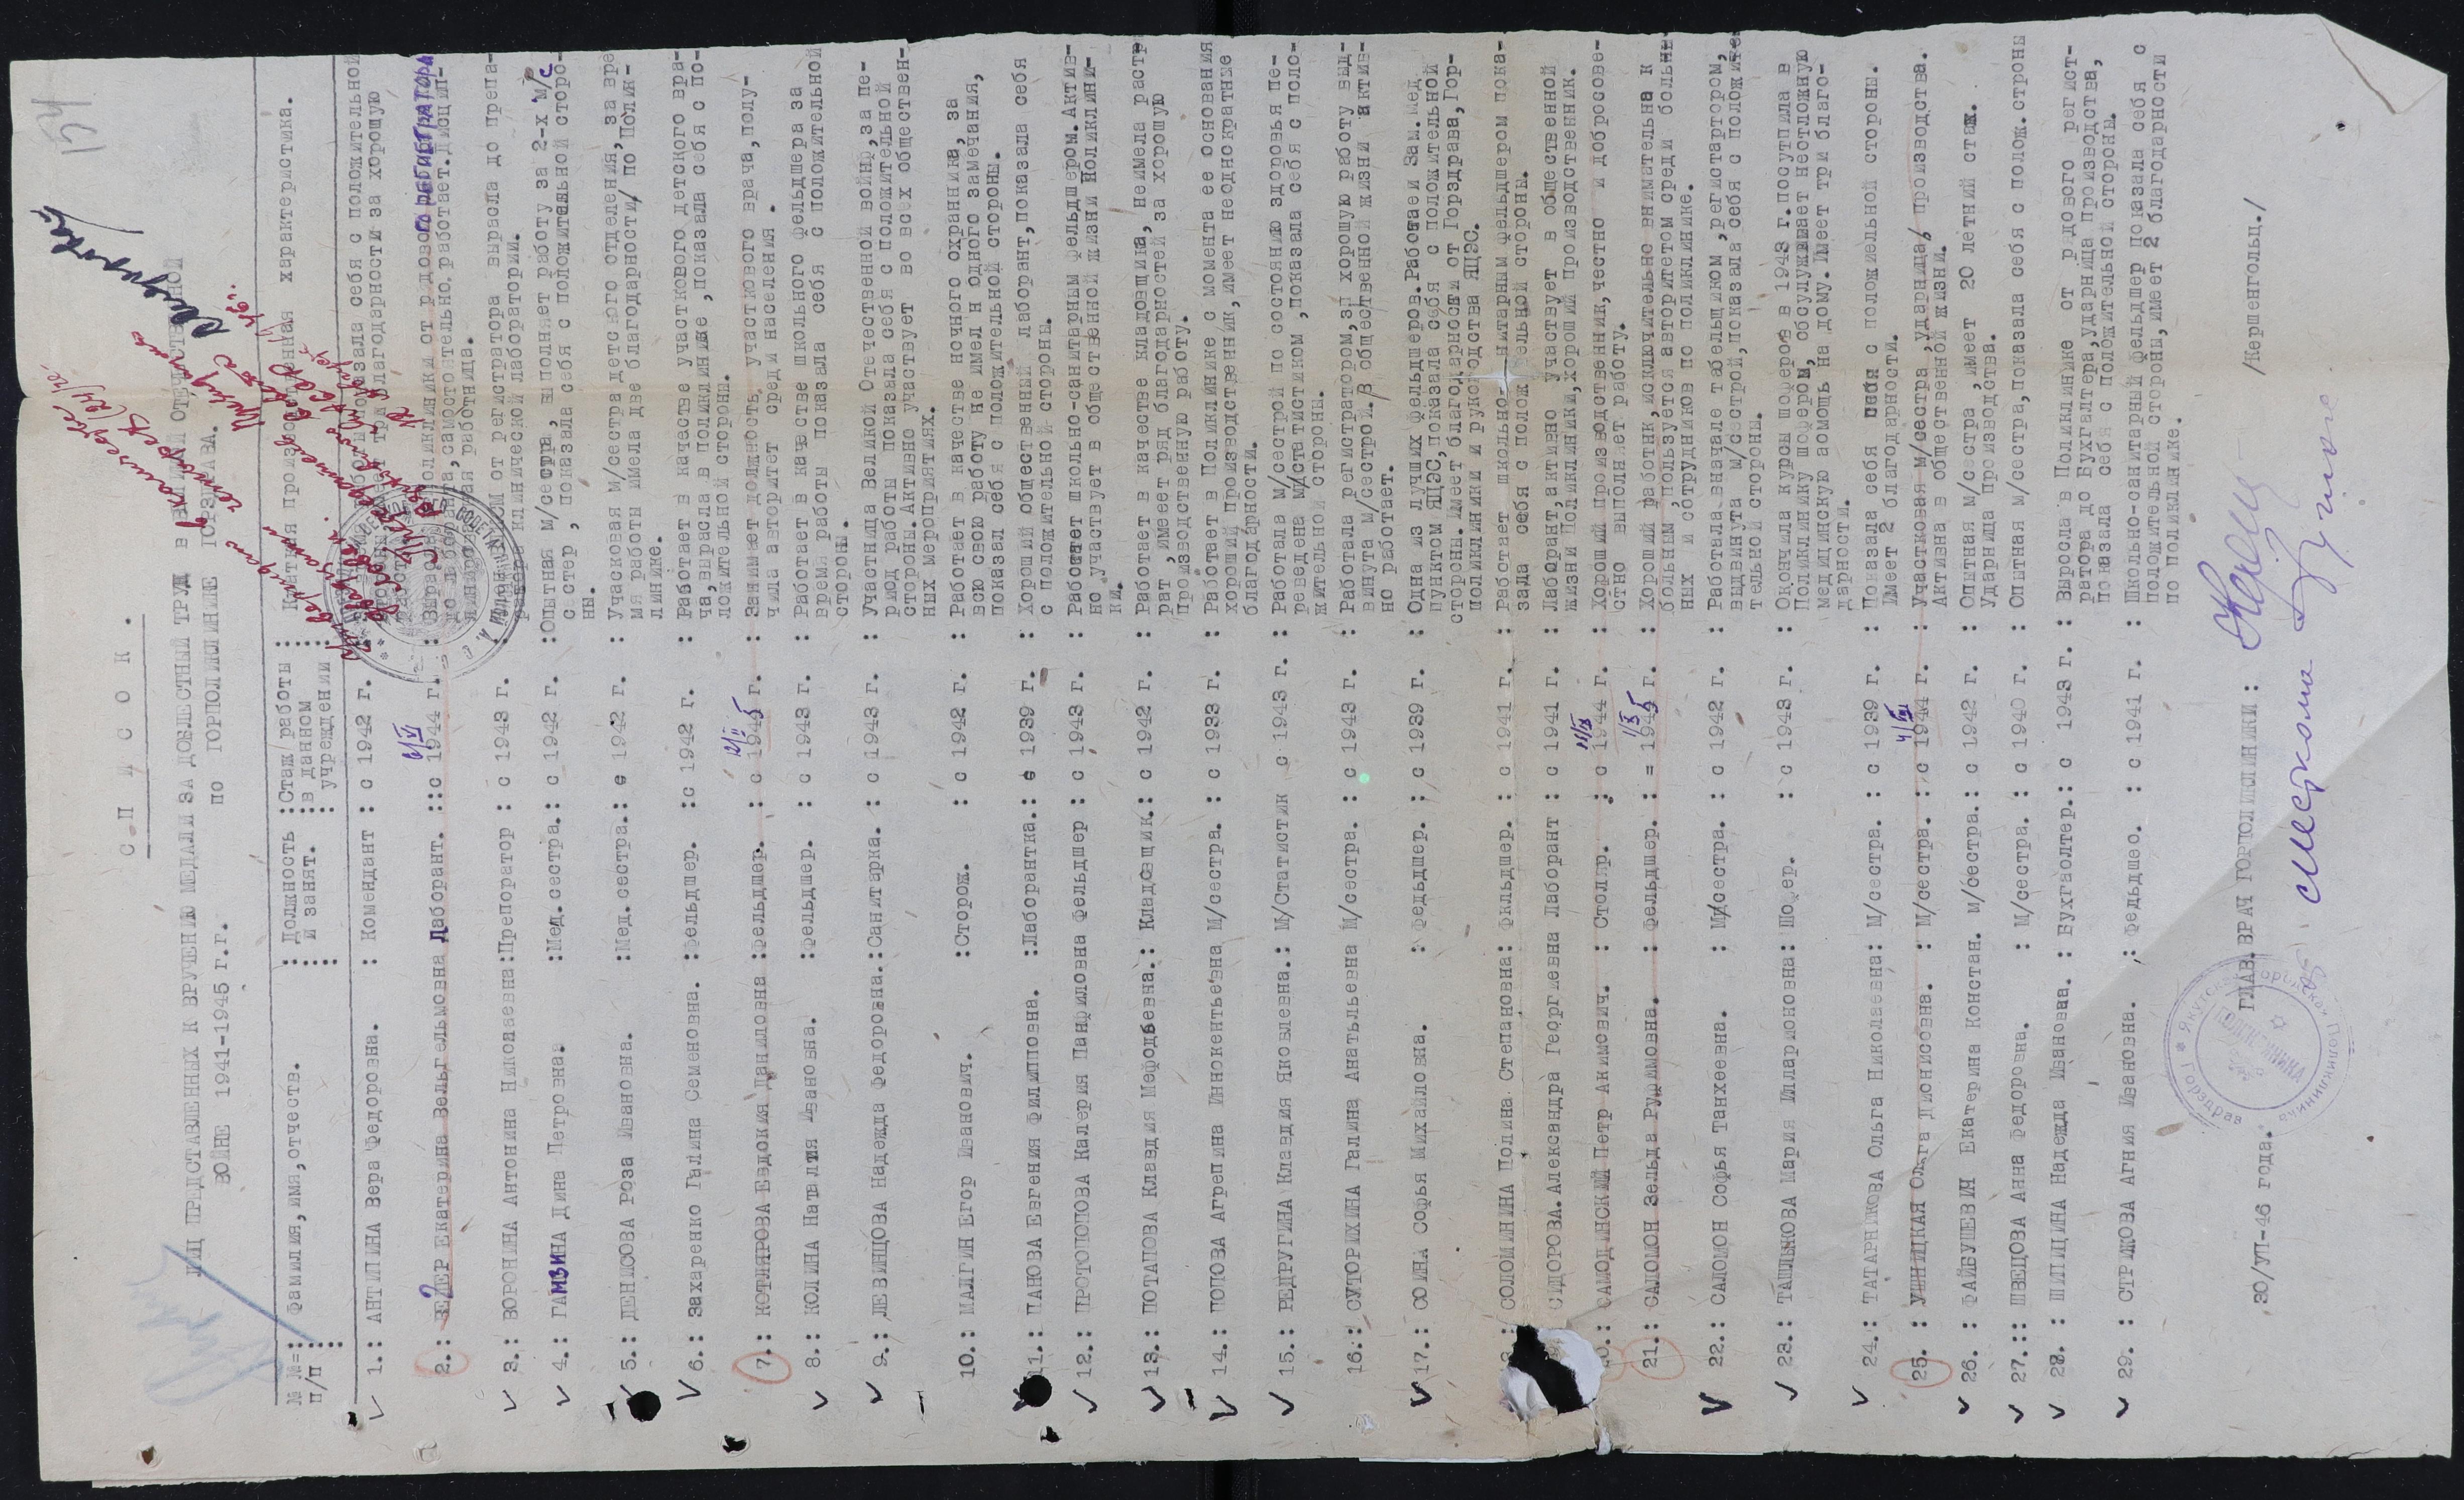 С П И С О К.
ЛИЦ ПРЕДСТАВЛЕННЫХ К ВРУЧЕНИЮ МЕДАЛИ ЗА ДОБЛЕСТНЫЙ ТРУД В ВЕЛИКОЙ ОТЕЧЕСТВЕННОЙ
ВОЙНЕ 1941-1945 г.г. ПО ГОРПОЛИКЛИНИКЕ ГОРЗДРАВА.
154
№ №= : Фамилия,имя,отчеств. : Должность : Стаж работы : Краткая производственная характеристика.
п/п : : и занят. : в данном :
: : : учреждении :
1.: АНТИПИНА Вера Федоровна. : Комендант : с 1942 г. : показала себя с положительной
стороны, имеет три благодарности за хорошую
2.: Екатерина Вельгельмовна Лаборант. :: с 1944 г. : Выросла в поликлинике от рядового регистратора
до лаборанта,самостоятельно.работает.Дисцип-
линированная работница.
3.: ВОРОНИНА Антонина Николаевна:Препоратор : с 1943 г. от регистратора выросла до препа-
ратора клинической лаборатории.
4.: ГАМЗИНА Дина Петровна. :Мед.сестра.: с 1942 г. :Опытная м/сестра, выполняет работу за 2-х м/с
сестер , показала себя с положительной сторо-
ны.
5.: ДЕНИСОВА Роза Ивановна. :Мед.сестра.: с 1942 г. : Учасковая м/сестра детского отделения,за вре
мя работы имела две благодарности/ по поли к-
линике.
6.: Захаренко Галина Семеновна. :Фельдшер. :с 1942 г. : Работает в качестве участкового детского вра-
ча,выросла в поликлинике ,показала себя с по-
ложительной стороны.
12/II
7.: КОТЛЯРОВА Евдокия Даниловна :Фельдшер. : с 1945 г. : Занимает должность участкового врача,полу-
чила авторитет среди населения .
8.: КОЛИНА Наталия Ивановна. :Фельдшер. : с 1943 г. : Работает в качестве школьного фельдшера за
время работы показала себя с положительной
стороны.
9.: ЛЕВИНЦОВА Надежда Федоровна.:Санитарка. : с 1943 г. : Участница Великой Отечественной войны,за пе-
риод работы показала себя с положительной
стороны.Активно участвует во всех обществен-
ных мероприятиях.
10.: МАЛГИН Егор Иванович. :Сторож. : с 1942 г. : Работает в качестве ночного охранника, за
всю свою работу не имел н одного замечания,
показал себя с положительной стороны.
11.: ПАНОВА Евгения Филипповна. :Лаборантка.: с 1939 г. : Хороший общественный лаборант,показала себя
с положительной стороны.
12.: ПРОТОПОПОВА Калерия Панфиловна Фельдшер : с 1943 г. : Работает школьно-санитарным фельдшером.Актив-
но участвует в общественной жизни поликлини-
ки.
13.: ПОТАПОВА Клавдия Мефодьевна.: Кладовщик.: с 1942 г. : Работает в качестве кладовщика, неимела растр
рат ,имеет ряд благодарностей за хорошую
производственную работу.
14.: ПОПОВА Агрепина Иннокентьевна М/сестра. : с 1933 г. : Работает в Поликлинике с момента ее основания
хороший производственник,имеет неоднократные
благодарности.
15.: РЕДРУГИНА Клавдия Яковлевна.: М/Статистик с 1943 г. : Работала м/сестрой по состоянию здоровья пе-
реведена м/статистиком ,показала себя с поло-
жительной стороны.
16.: СУТОРИХИНА Галина Анатльевна М/сестра. : с 1943 г. : Работала регистратором,за хорошую работу выд-
винута м/сестрой./В общественной жизни актив-
но работает.
17.: СОИНА Софья Михайловна. : Федьдшер. : с 1939 г. : Одна из лучших фельдшеров.Работае и Зам.мед
пунктом ЯЦЭС,показала себя с положительной
стороны.Имеет благодарности от Горздрава,Гор-
поликлиники и руководства ЯЦЭС.
СОЛОМИНИНА Полина Степановна: Фкльдшер. : с 1941 г. : Работает школьно- нитарным фельдшером пока-
зала себя с полож тельной стороны.
СИДОРОВА.Александра Георгиевна Лаборант : с 1941 г. : Лаборант,активно участвует в общественной
жизни Поликлиники,хороший производственник.
САМОДИНСКИЙ Петр Акимович. : Столяр. : с 1944 г. : Хороший производственник,честно и добросове-
стно выполняет работу.
21.: САЛОМОН Зельда Руфимовна. : Фельдшер. : = 1945 г. : Хороший работнк,исключительно внимательна к
больным ,пользуется авторитетом среди больны-
ных и сотрудников по поликлинике.
22.: САЛОМОН Софья Танхеевна. : М/сестра. : с 1942 г. : Работала вначале табельщиком,регистартором,
выдвинута м/сестрой,показала себя с положите-
тельной стороны.
23.: ТАШЛЫКОВА Мария Илларионовна: Шофер. : с 1943 г. : Окончила курсы шоферов в 1943 г.поступила в
Поликлинику шофером, обслуживает неотложную
медицинскую помощь на дому.Имеет три благо-
дарности.
24.: ТАТАРНИКОВА Ольга Николаевна: М/сестра. : с 1939 г. : Показала себя с положиельной стороны.
Имеет 2 благодарности.
25. : УШНИЦКАЯ Ольга Дионисовна. : М/сестра. : с 1944 г. : Участковая м/сестра ,ударница, производства.
Активна в общественной жизни.
26. : ФАЙБУШЕВИЧ Екатерина Констан. м/сестра.: с 1942 г. : Опытная м/сестра ,имеет 20 летний стаж.
Ударница производства.
27.:: ШВЕЦОВА Анна Федоровна. : М/сестра. : с 1940 г. : Опытная м/сестра,показала себя с полож.стороны
28. : ШИПИЦИНА Надежда Ивановна. : Бухгаолтер.: с 1943 г. : Выросла в Поликлинике от рядового регист-
ратора до Бухгалтера,ударница производства,
показала себя с положительной стороны.
29. : СТРИЖОВА Агния Ивановна. : Федьдшео. : с 1941 г. : Школьно-санитарный фельдшер показала себя с
положительной стороны,имеет 2 благодарности
по поликлинике.
30/УП-46 года. ГЛАВ.ВРАЧ ГОРПОЛИКЛИНИКИ: /Кершенгольц./
Месткома
ПОЛИКЛИНИКА